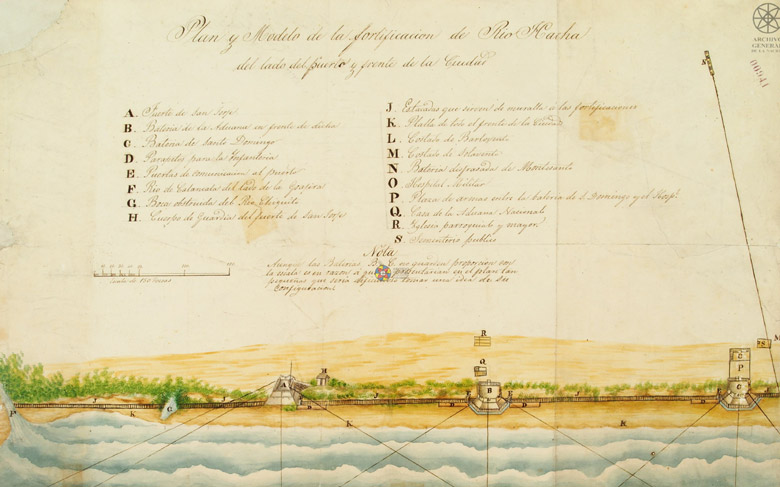 Plan y Modelo de la fortificacion de Rio Hacha
del lado del Puerto y frente de la Ciudad
A. Fuerte de San Jorje
B. Bateria de la Aduana en frente de dicha
C. Bateria de Santo Domingo
D. Parapetos para la Infanteria
E. Puertas de comunicacion al puerto
F. Rio de Calancala del lado de la Goajira
G. Boca obstruida del Rio
H. Cuerpo de Guardia del fuerte de San Jorje
J. Estacadas que sirven de muralla a las fortificaciones
K. Playa de todo el frente de la Ciudad
L. Costado de Barlovento
M. Costado de Sotavento
N. Bateria de
O. Hospital Militar
P. Plaza de armas entre la bateria de S. Domingo y el Hosp.
Q. Casa de la Aduana Nacional
R. Yglesia parroquial y mayor
S. Sementerio publico
Nota
Aunque las Baterias B C no guarden proporcion con
la escala es en razon a que presentarian en el plan tan
pequeñas que seria tomar una idea de su
configuracion
Escala de 150
ARCHIVO
GENERAL
DE LA NACION
N
S
M
R
Q
H
A
B
C
P
O
F
J
K
G
J
D
E
D
D
K
K